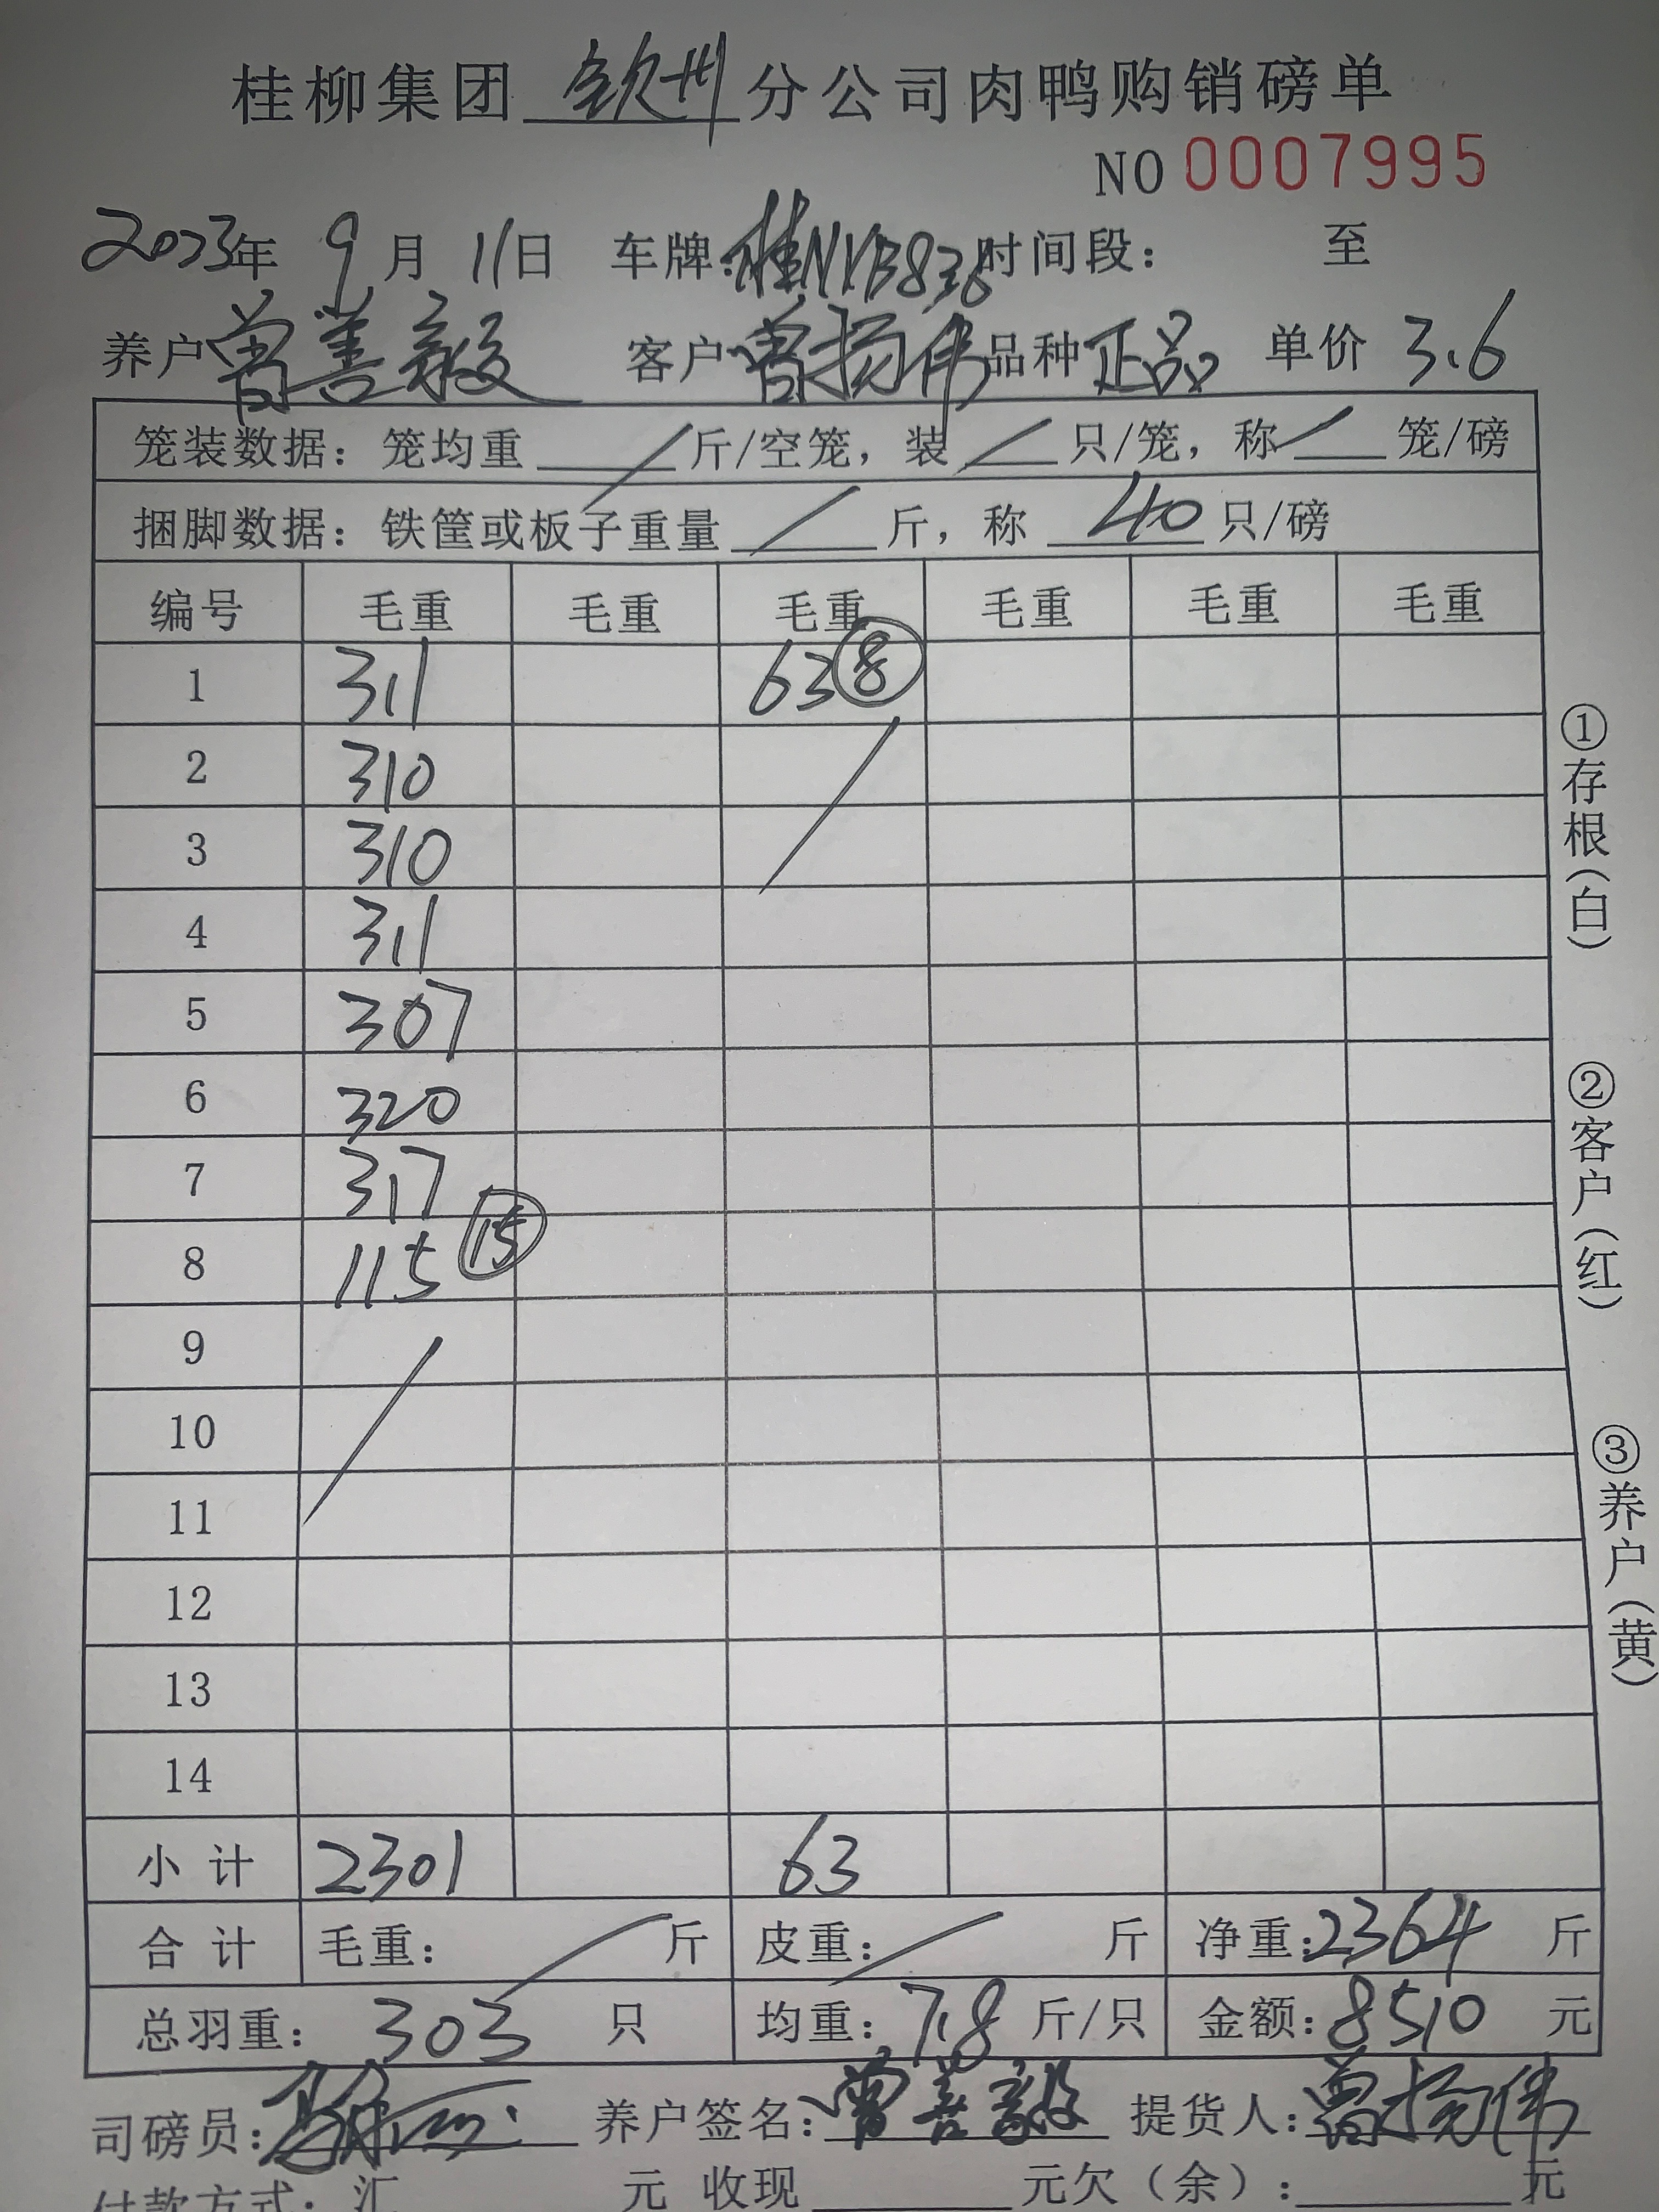 桂柳集团 钦州 分公司肉鸭购销磅单
NO 0007995
2023年 9月 11日 车牌:桂NYB838 时间段: 至
养户 曾善毅 客户 曾扬伟 品种 正品 单价 3.6
笼装数据: 笼均重 / 斤/空笼, 装 / 只/笼, 称 / 笼/磅
捆脚数据: 铁筐或板子重量 / 斤, 称 40 只/磅
编号 毛重 毛重 毛重 毛重 毛重 毛重
1 311 63 ⑧
2 310 /
3 310
4 311
5 307
6 320
7 317
8 115 ⑮
9 /
10
11
12
13
14
小计 2301 63
合计 毛重: / 斤 皮重: / 斤 净重:2364 斤
总羽重: 303 只 均重: 7.8 斤/只 金额:8510 元
司磅员: 养户签名:曾善毅 提货人:曾扬伟
付款方式: 汇 元 收现 元欠(余): 元
①存根(白)
②客户(红)
③养户(黄)